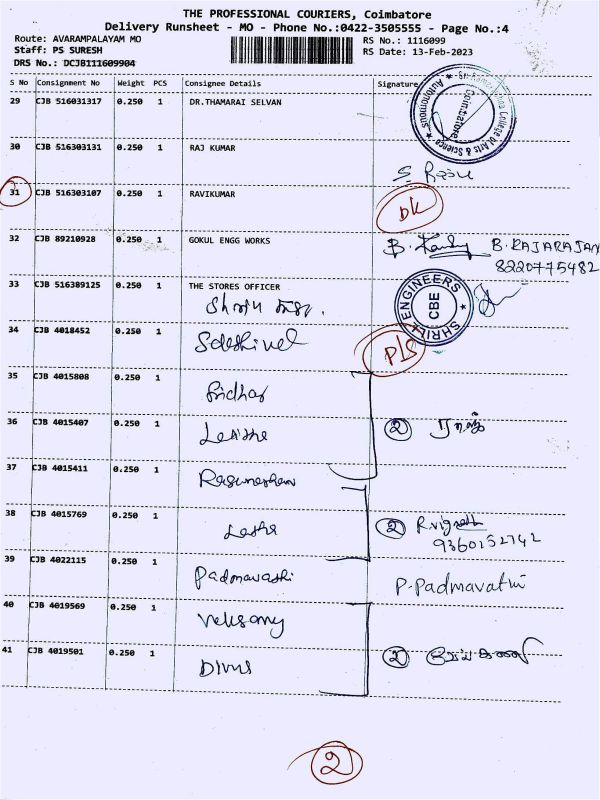 THE PROFESSIONAL COURIERS, Coimbatore
Delivery Runsheet - MO - Phone No.:0422-3505555 - Page No.:4
Route: AVARAMPALAYAM MO
RS No.: 1116099
Staff: PS SURESH
RS Date: 13-Feb-2023
DRS No.: DCJB111609904
S No Consignment No Weight PCS Consignee Details Signature
29 CJB 516031317 0.250 1 DR.THAMARAI SELVAN
College of Arts & Science Autonomous Coimbatore
30 CJB 516303131 0.250 1 RAJ KUMAR
31 CJB 516303107 0.250 1 RAVIKUMAR
DK
32 CJB 89210928 0.250 1 GOKUL ENGG WORKS B. B. RAJARAJAN
8220775482
33 CJB 516389125 0.250 1 THE STORES OFFICER
SHRILX ENGINEERS CBE
34 CJB 4018452 0.250 1
P/S
35 CJB 4015808 0.250 1 Sridhar
36 CJB 4015407 0.250 1 2
37 CJB 4015411 0.250 1
38 CJB 4015769 0.250 1 2 R.vignesh
9360252742
39 CJB 4022115 0.250 1 Padmavathi P. Padmavathi
40 CJB 4019569 0.250 1
41 CJB 4019501 0.250 1 2
2